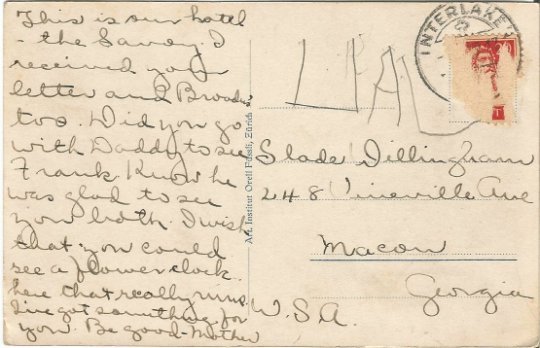 This is our hotel
- the Savoy. I
received your
letter and Brooks
too. Did you go
with Daddy to see
Frank. Know he
was glad to see
you both. I wish
that you could
see a flower clock
here that really runs.
I've got something for
you. Be good - Mother
Art. Institut Orell Füssli, Zürich
INTERLAKEN
Slade Dillingham
248 Vineville Ave
Macon
Georgia
U.S.A.